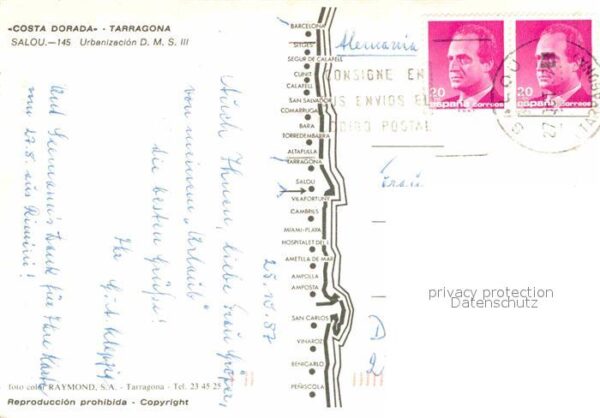 «COSTA DORADA» - TARRAGONA
SALOU.—145 Urbanización D. M. S. III
25.10.87
Auch Ihnen, liebe Frau
von meinem "Urlaub"
die besten Grüße!
Ihr
und
Dank für Ihre Karte
vom 27.8. aus Rimini!
foto color RAYMOND, S.A. - Tarragona - Tel. 23 45 25
Reproducción prohibida - Copyright
BARCELONA
SITGES
SEGUR DE CALAFELL
CUNIT
CALAFELL
SAN SALVADOR
COMARRUGA
BARA
TORREDEMBARRA
ALTAFULLA
TARRAGONA
SALOU
VILAFORTUNY
CAMBRILS
MIAMI-PLAYA
HOSPITALET DEL I.
AMETLLA DE MAR
AMPOLLA
AMPOSTA
SAN CARLOS
VINAROZ
BENICARLO
PEÑISCOLA
Alemania
CONSIGNE EN
SUS ENVIOS EL
CODIGO POSTAL
20
españa CORREOS
20
españa CORREOS
Frau
privacy protection
Datenschutz